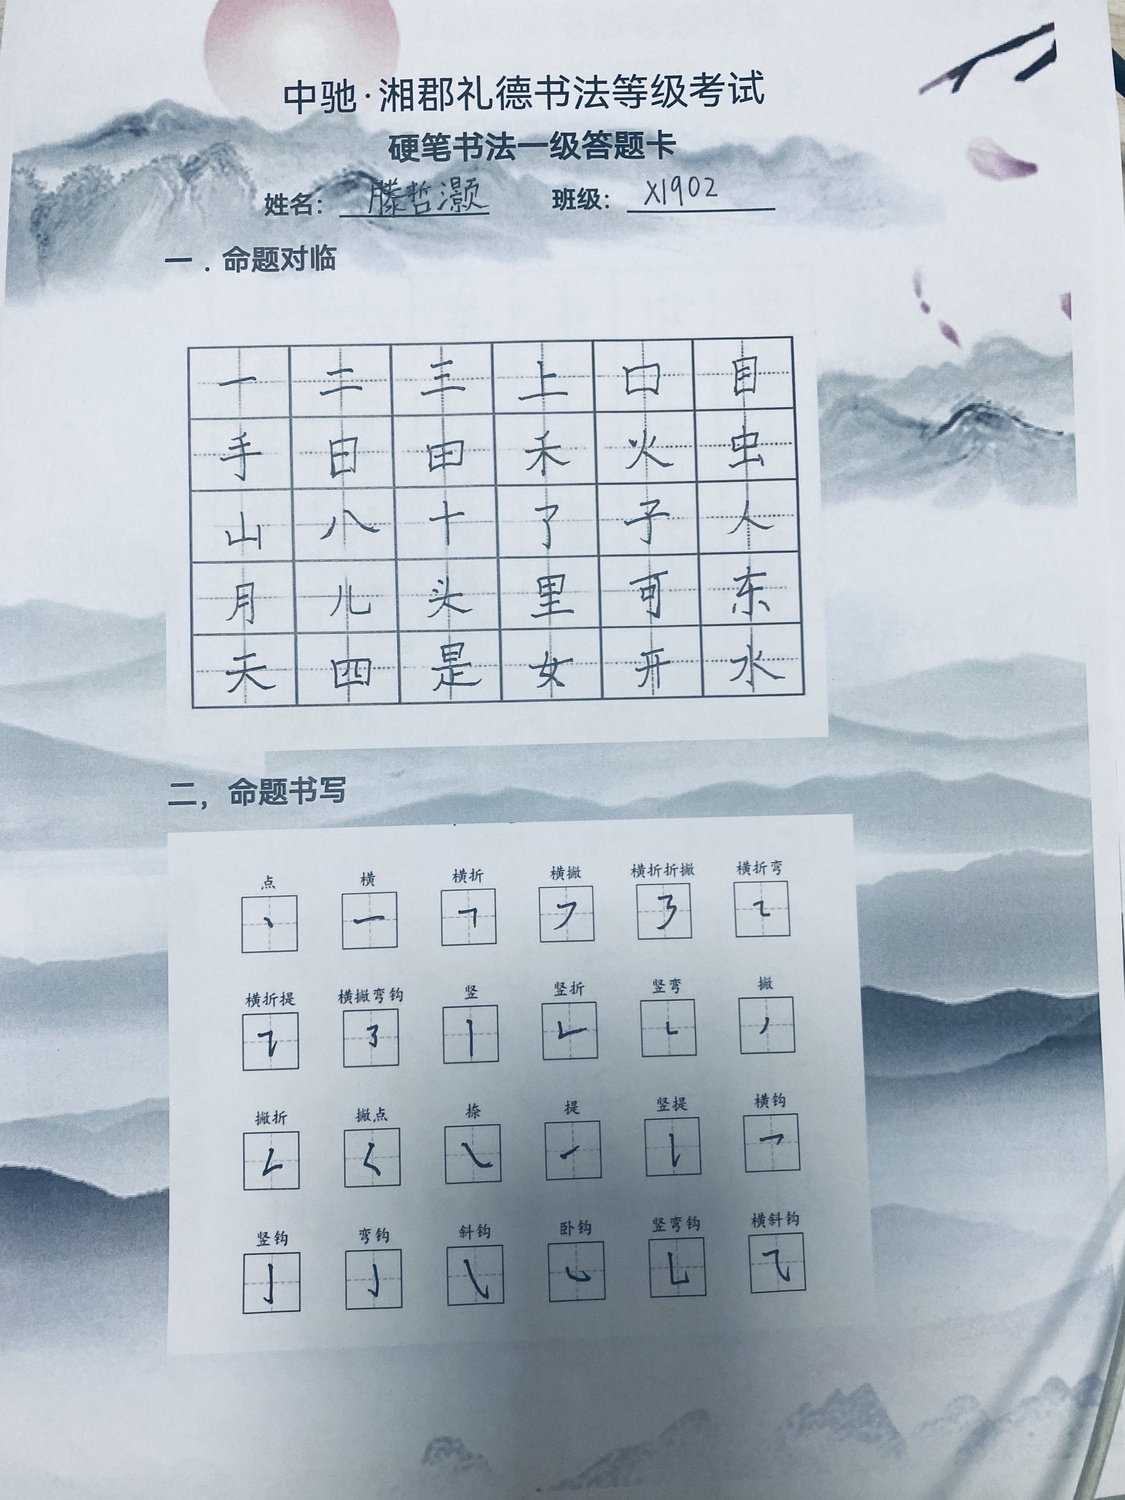 中驰·湘郡礼德书法等级考试
硬笔书法一级答题卡
姓名：滕哲灏 班级：X1902
一．命题对临
一 二 三 上 口 目
手 日 田 禾 火 虫
山 八 十 了 子 人
月 儿 头 里 可 东
天 四 是 女 开 水
二，命题书写
点 横 横折 横撇 横折折撇 横折弯
丶 一 𠃍 ㇇ ㇋ ㇍
横折提 横撇弯钩 竖 竖折 竖弯 撇
㇊ ㇌ 丨 ㇗ ㇄ 丿
撇折 撇点 捺 提 竖提 横钩
㇜ ㇛ ㇏ ㇀ ㇙ ㇖
竖钩 弯钩 斜钩 卧钩 竖弯钩 横斜钩
亅 ㇁ ㇂ ㇃ ㇟ ⺄